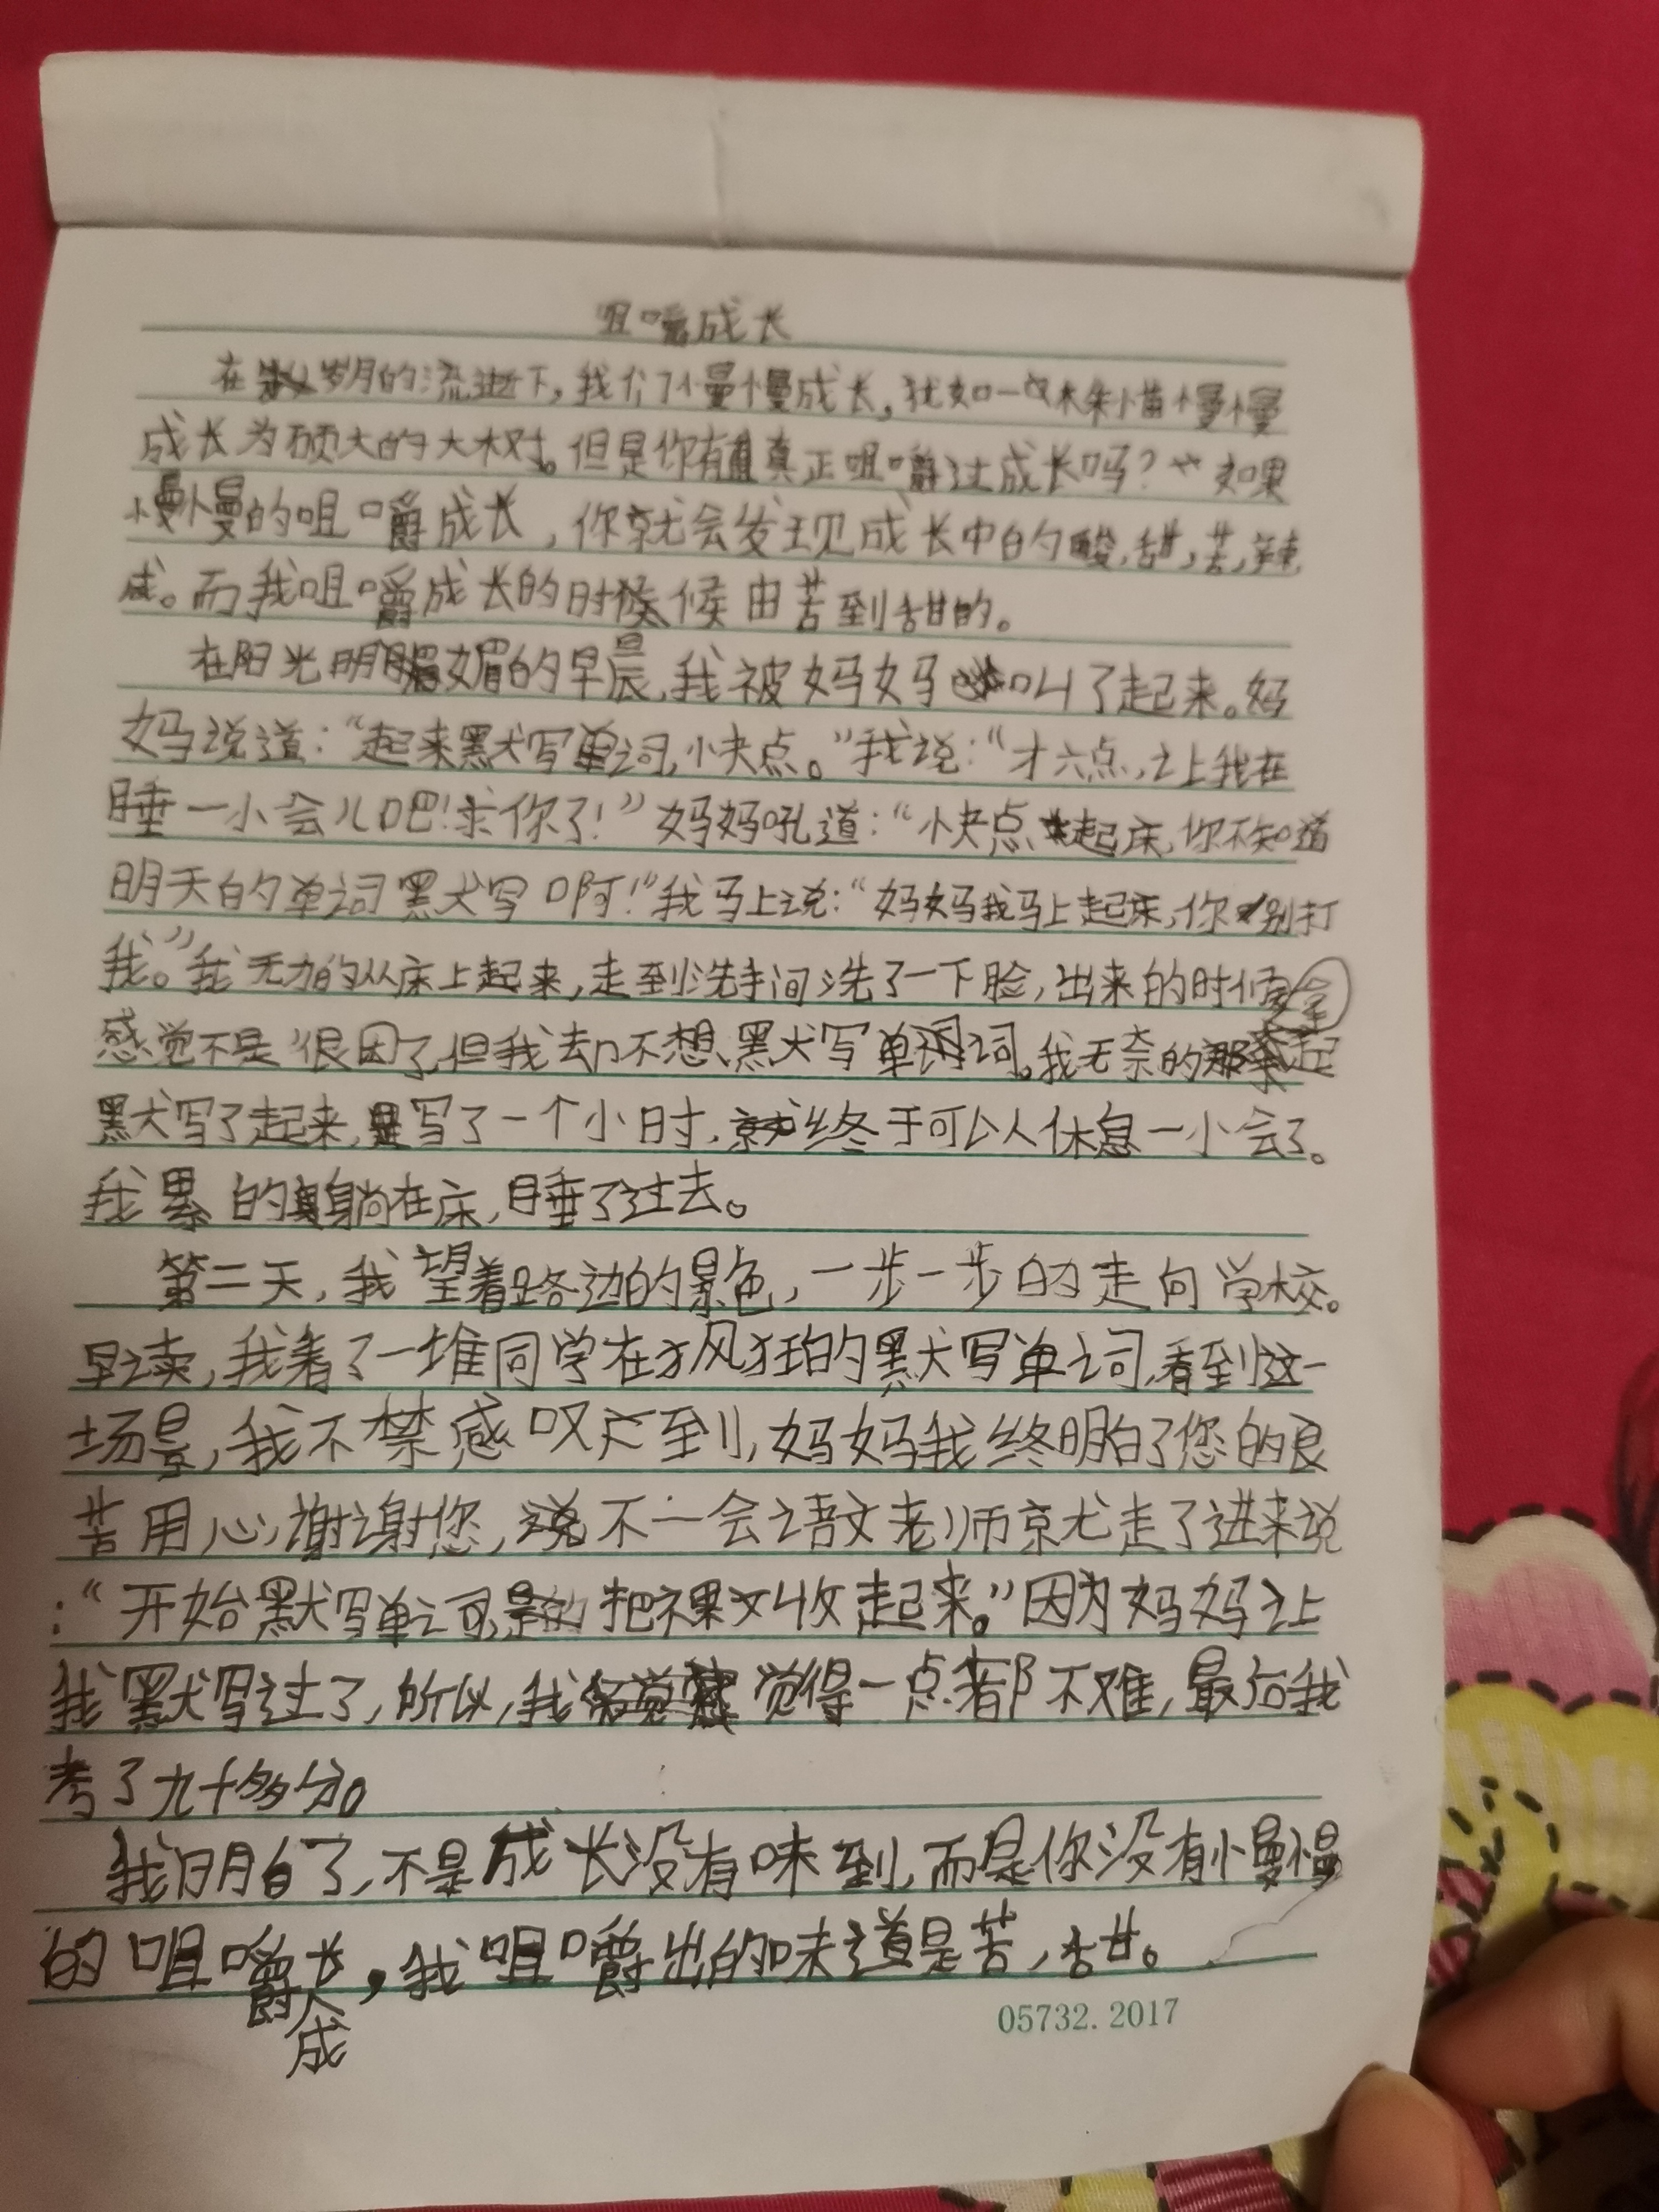 咀嚼成长
在岁月的流逝下，我们慢慢成长，犹如一株小苗慢慢
成长为硕大的大树。但是你有真正咀嚼过成长吗？如果
慢慢的咀嚼成长，你就会发现成长中的酸，甜，苦，辣
咸。而我咀嚼成长的时候由苦到甜的。
在阳光明媚的早晨，我被妈妈叫了起来。妈
妈说道：“起来默写单词，快点。”我说：“才六点，让我在
睡一小会儿吧！求你了！”妈妈吼道：“快点起床，你不知道
明天的单词默写啊！”我马上说：“妈妈我马上起床，你别打
我。”我无力的从床上起来，走到洗手间洗了一下脸，出来的时候
感觉不是很困了，但我却不想默写单词。我无奈的拿起
默写了起来，写了一个小时，终于可以休息一小会了。
我累的躺在床，睡了过去。
第二天，我望着路边的景色，一步一步的走向学校。
早读，我看了一堆同学在疯狂的默写单词，看到这一
场景，我不禁感叹到，妈妈我终明白了您的良
苦用心，谢谢您，不一会语文老师就走了进来说
：“开始默写单词，把课文收起来。”因为妈妈让
我默写过了，所以，我觉得一点都不难，最后我
考了九十多分。
我明白了，不是成长没有味到，而是你没有慢慢
的咀嚼成长，我咀嚼出的味道是苦，甜。
05732.2017